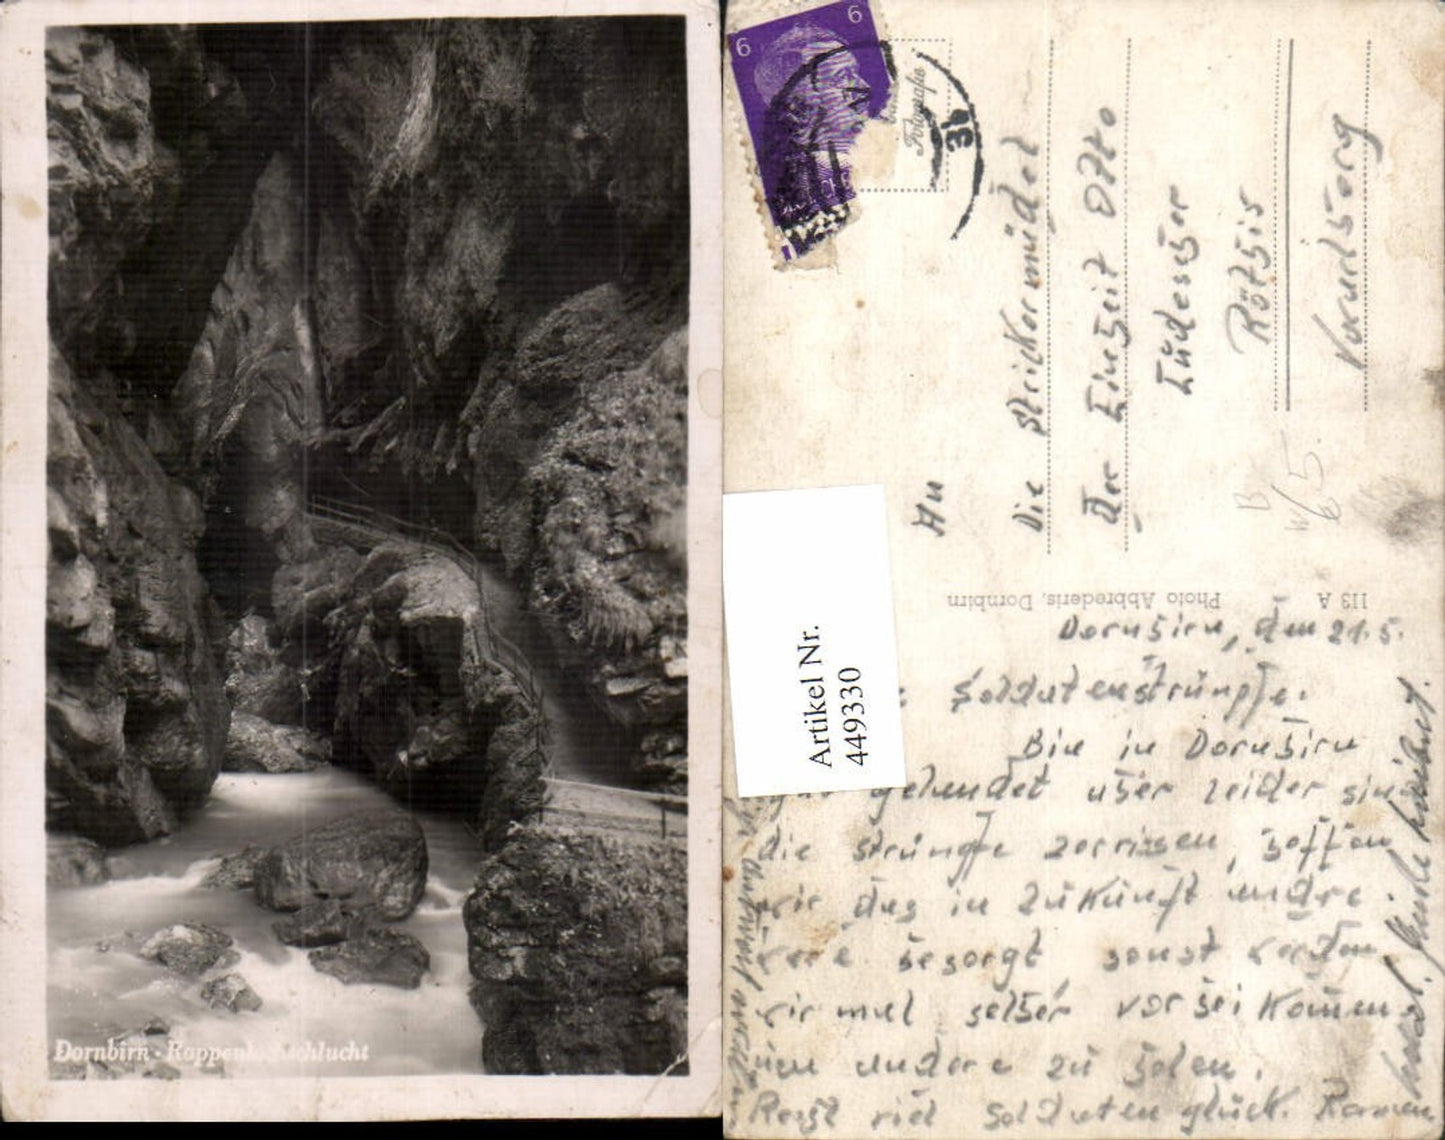 Dornbirn - Rappenlochschlucht
6
6
Fotografie
An
Die Strickermädel
der Einheit Otto
Lüdescher
Röthis
Vorarlberg
B
65
Artikel Nr.
449330
113 A Photo Abbrederis, Dornbirn
Dornbirn, den 21.5.
Soldatenstrümpfe.
Bin in Dornbirn
gelandet aber leider sind
die Strümpfe zerrissen, hoffen
wir das in Zukunft andre
besorgt, sonst werden
wir mal selber vorbei kommen
um andere zu holen.
Recht viel Soldaten glück.